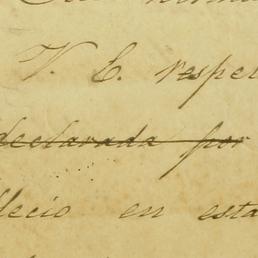 V. E. respe
declarada por
lecio en esta